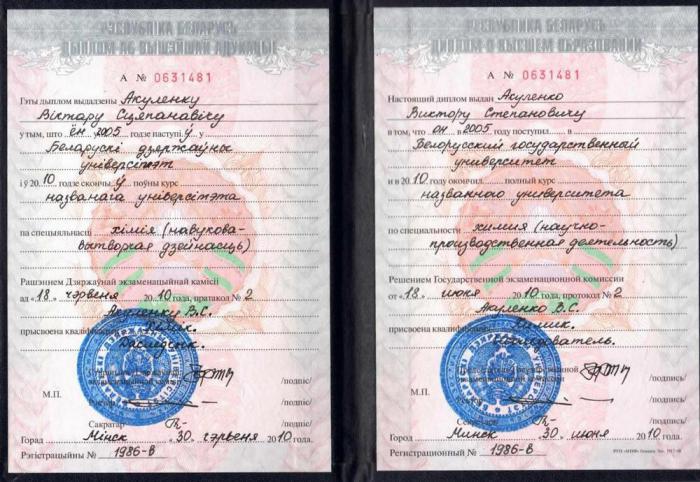 РЭСПУБЛІКА БЕЛАРУСЬ
ДЫПЛОМ АБ ВЫШЭЙШАЙ АДУКАЦЫІ
А № 0631481
Гэты дыплом выдадзены Акуленку
Віктару Сцяпанавічу
у тым, што ён у 2005 годзе наступіў у
Беларускі дзяржаўны
універсітэт
і ў 2010 годзе скончыў поўны курс
названага універсітэта
па спецыяльнасці хімія (навукова-
вытворчая дзейнасць)
Рашэннем Дзяржаўнай экзаменацыйнай камісіі
ад «18» чэрвеня 2010 года, пратакол № 2
Акуленку В.С.
прысвоена кваліфікацыя Хімік.
Даследчык.
М.П.
/подпіс/
/подпіс/
Сакратар /подпіс/
Горад Мінск «30» чэрвеня 2010 года.
Рэгістрацыйны № 1986-В
РЕСПУБЛИКА БЕЛАРУСЬ
ДИПЛОМ О ВЫСШЕМ ОБРАЗОВАНИИ
А № 0631481
Настоящий диплом выдан Акуленко
Виктору Степановичу
в том, что он в 2005 году поступил в
Белорусский государственный
университет
и в 2010 году окончил полный курс
названного университета
по специальности химия (научно-
производственная деятельность)
Решением Государственной экзаменационной комиссии
от «18» июня 2010 года, протокол № 2
Акуленко В.С.
присвоена квалификация Химик.
Исследователь.
Председатель Государственной
экзаменационной комиссии /подпись/
М.П.
/подпись/
Секретарь /подпись/
Город Минск «30» июня 2010 года.
Регистрационный № 1986-В